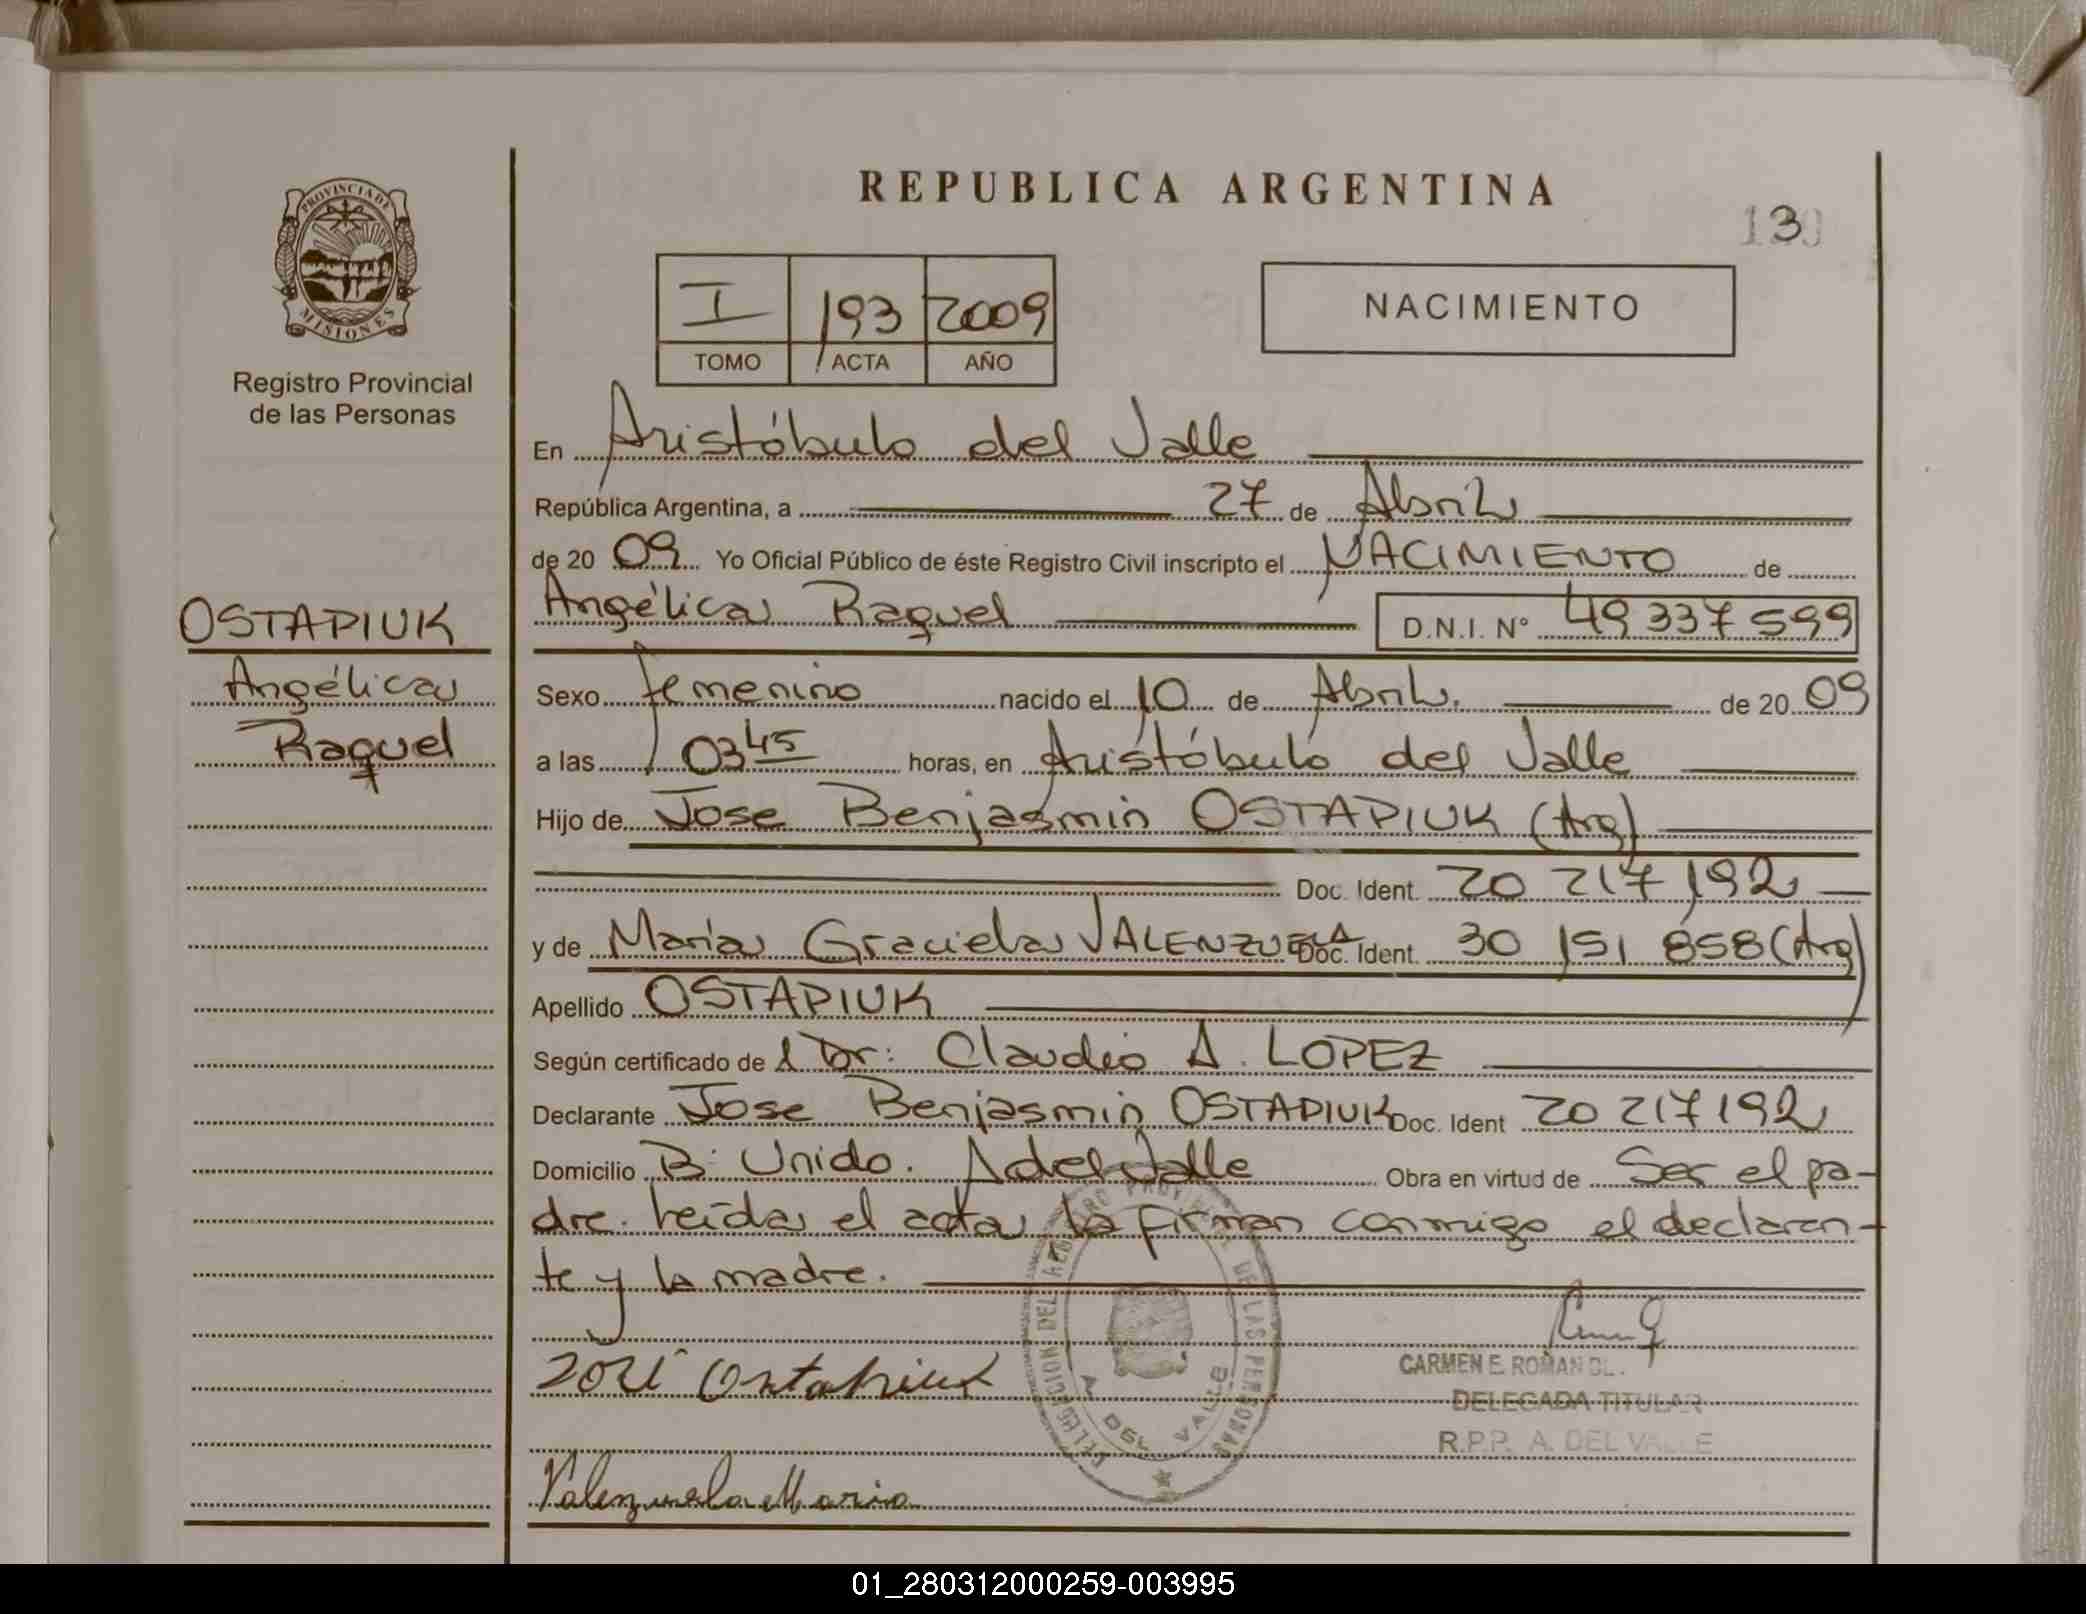 REPUBLICA ARGENTINA
13
PROVINCIA DE
MISIONES
Registro Provincial
de las Personas
I 193 2009
TOMO ACTA AÑO
NACIMIENTO
En Aristóbulo del Valle
República Argentina, a 27 de Abril
de 2009 Yo Oficial Público de éste Registro Civil inscripto el NACIMIENTO de
Angélica Raquel D.N.I. Nº 49 337 599
OSTAPIUK
Angélica
Raquel
Sexo femenino nacido el 10 de Abril. de 2009
a las 03 45 horas, en Aristóbulo del Valle
Hijo de Jose Benjasmin OSTAPIUK (Arg)
Doc. Ident. 20 217 192
y de María Graciela VALENZUELA Doc. Ident. 30 151 858 (Arg)
Apellido OSTAPIUK
Según certificado de l Dr: Claudio A. LOPEZ
Declarante Jose Benjasmin OSTAPIUK Doc. Ident 20 217 192
Domicilio B: Unido. A del Valle Obra en virtud de Ser el pa-
dre. Leída el acta la firman conmigo el declaran-
te y la madre.
DELEGACION DEL REGISTRO PROVINCIAL DE LAS PERSONAS
A DEL VALLE
CARMEN E. ROMAN
DELEGADA TITULAR
R.P.P. A. DEL VALLE
José Ostapiuk
Valenzuela Maria
01_280312000259-003995